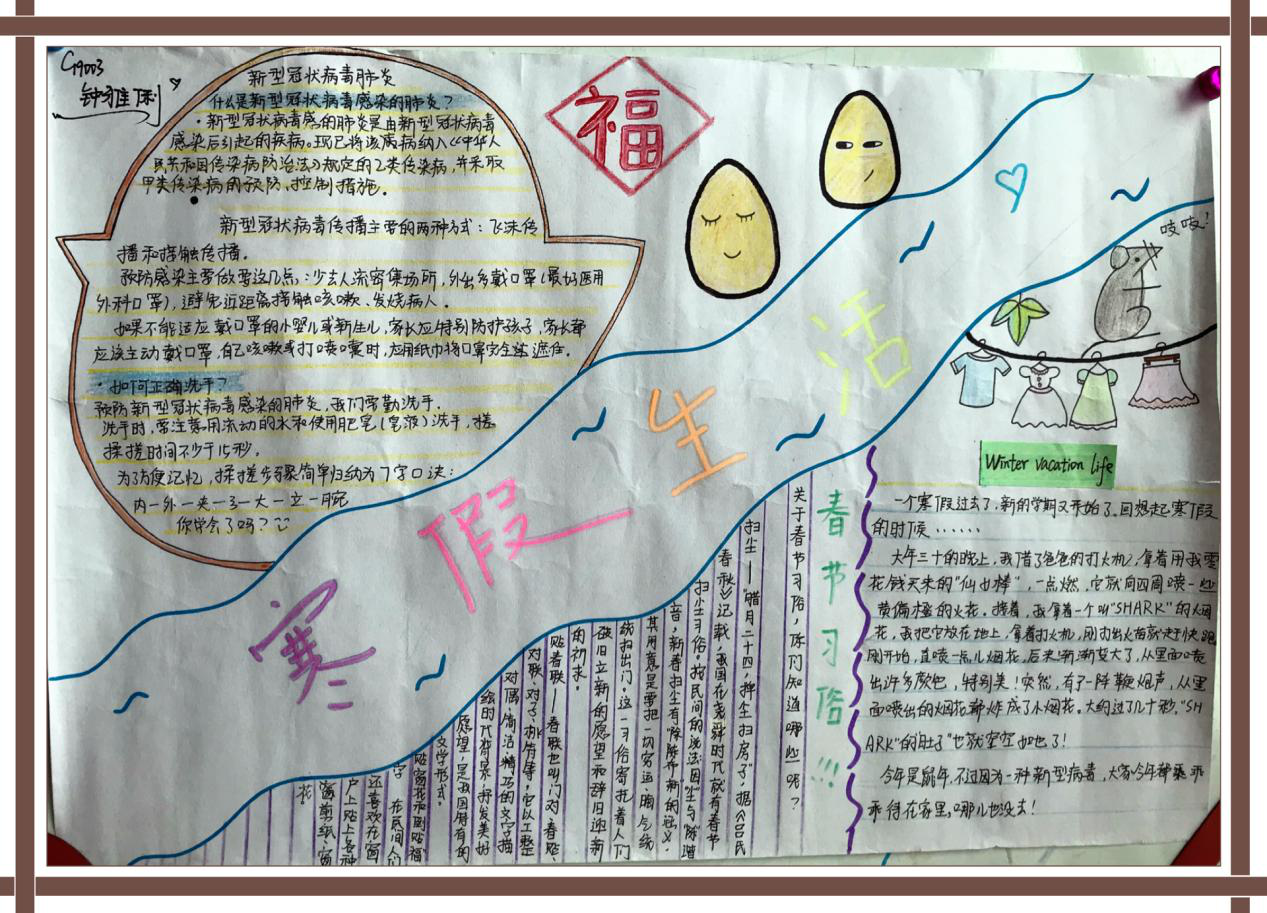 G9003
钟雅俐
新型冠状病毒肺炎
什么是新型冠状病毒感染的肺炎?
·新型冠状病毒感的肺炎是由新型冠状病毒
感染后引起的疾病。现已将该病病纳入《中华人
民共和国传染病防治法》规定的乙类传染病,并采取
甲类传染病的预防、控制措施。
新型冠状病毒传播主要的两种方式:飞沫传
播和接触传播。
预防感染主要做要这几点,:少去人流密集场所,外出多戴口罩(最好医用
外科口罩),避免近距离接触咳嗽、发烧病人。
如果不能适应戴口罩的小婴儿或新生儿,家长应特别防护孩子,家长都
应该主动戴口罩,自己咳嗽或打喷嚏时,应用纸巾将口罩完全遮住。
·如何正确洗手?
预防新型冠状病毒感染的肺炎,我们要勤洗手。
洗手时,要注意用流动的水和使用肥皂(皂液)洗手,搓
揉搓时间不少于15秒。
为了方便记忆,揉搓步骤简单归纳为7字口诀:
内一外一夹一弓一大一立一腕
你学会了吗?
福
寒假生活
吱吱!
Winter vacation life
一个寒假过去了,新的学期又开始了。回想起寒假
的时候······
大年三十的晚上,我借了爸爸的打火机,拿着用我零
花钱买来的"仙女棒",一点燃,它就向四周喷一些
黄偏橙的火花。接着,我拿着一个叫"SHARK"的烟
花,我把它放在地上,拿着打火机,刚打出火苗就赶快跑
刚开始,直喷一点儿烟花,后来渐渐变大了,从里面喷
出许多颜色,特别美!突然,有了一阵鞭炮声,从里
面喷出的烟花都炸成了小烟花。大约过了几十秒,"SH
ARK"的肚子"也就空空如也了!
今年是鼠年,不过因为一种新型病毒,大家今年都乖乖
乖待在家里,哪儿也没去!
春节习俗!!!
关于春节习俗,你们知道哪些呢?
扫尘——"腊月二十四,掸尘扫房子",据《吕氏
春秋》记载,我国在尧舜时代就有春节
扫尘习俗。按民间的说法:因"尘"与"陈"谐
音,新春扫尘有"除陈布新"的涵义,
其用意是要把一切穷运、晦气统
统扫出门。这一习俗寄托着人们
破旧立新的愿望和辞旧迎新
的祈求。
贴春联——春联也叫门对、春贴、
对联、对子、桃符等,它以工整、
对偶、简洁、精巧的文字描
绘时代背景,抒发美好
愿望,是我国特有的
文学形式。
贴窗花和倒贴"福"
字 在民间人们
还喜欢在窗
户上贴上各种
窗剪纸·窗
花